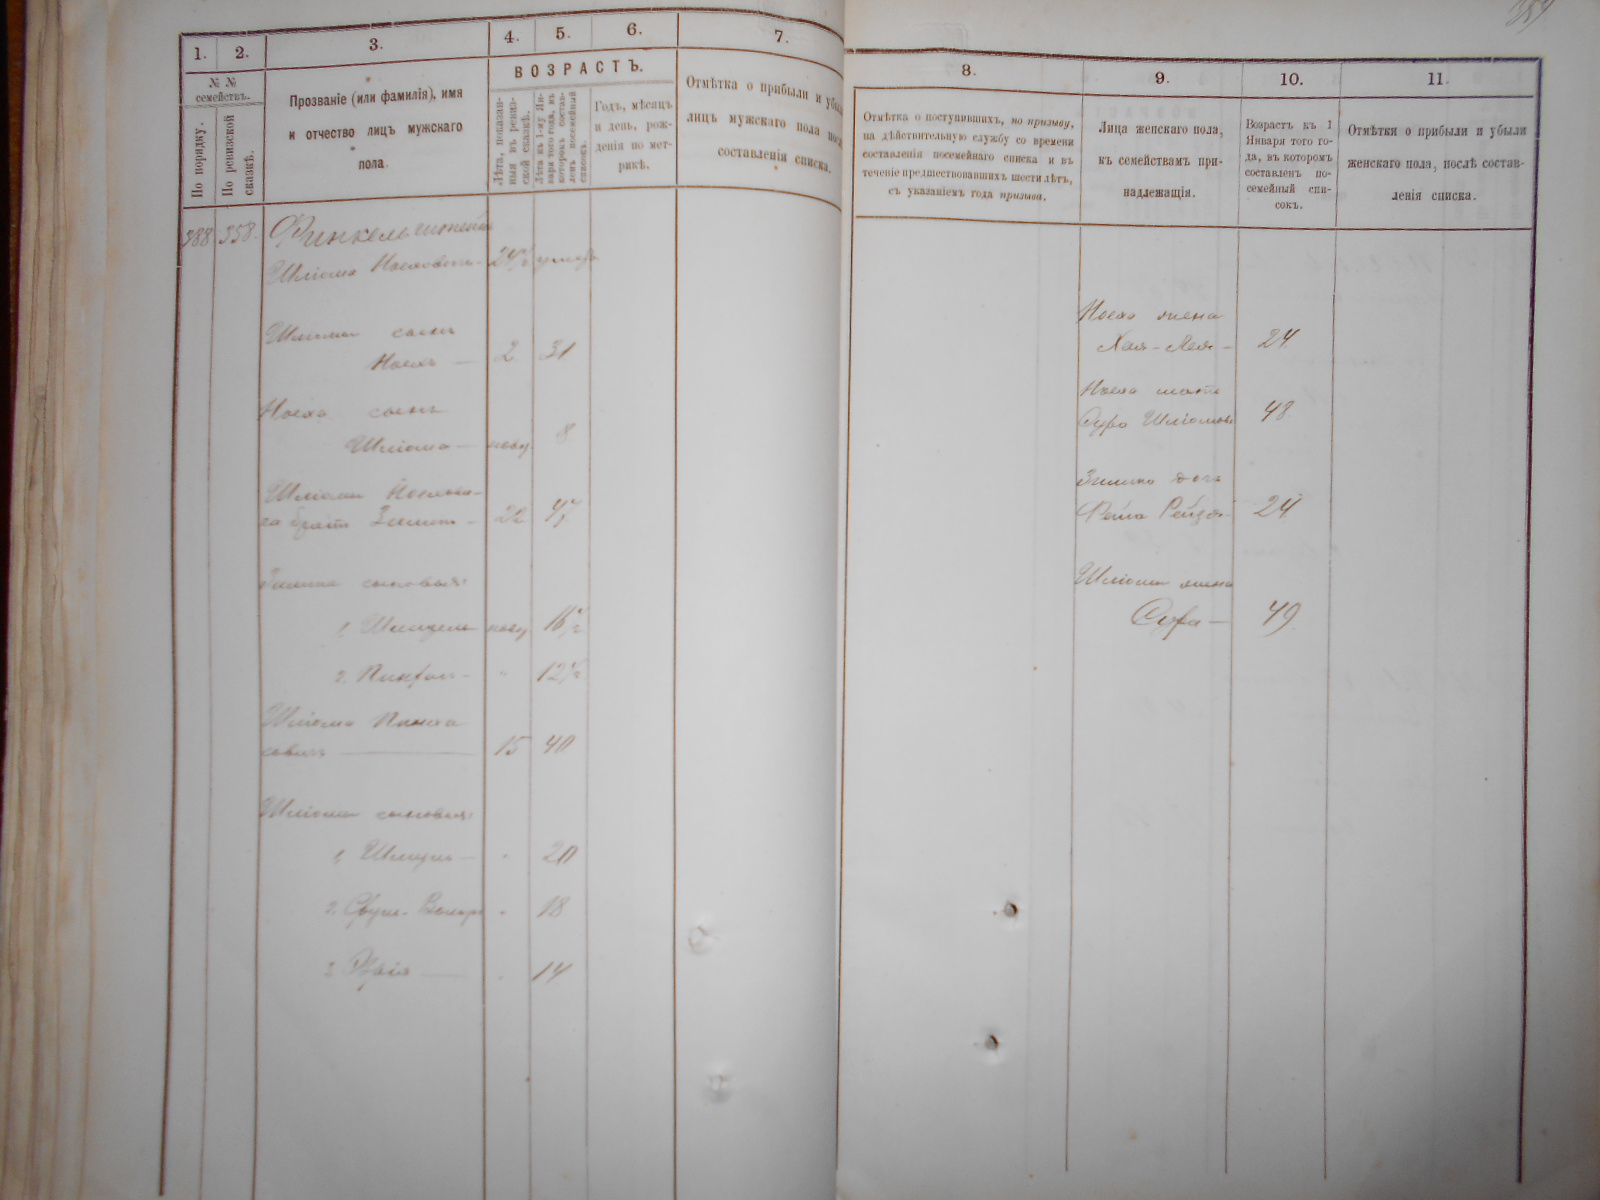 1.
2.
3.
4.
5.
6.
7.
№ №
семействъ.
По порядку.
По ревизской
сказкѣ.
Прозваніе (или фамилія), имя
и отчество лицъ мужскаго
пола.
ВОЗРАСТЪ.
Лѣта, показан-
ныя въ ревиз-
ской сказкѣ.
Лѣта къ 1-му Ян-
варя того года, въ
которомъ состав-
ленъ посемейный
списокъ.
Годъ, мѣсяцъ
и день, рож-
денія по мет-
рикѣ.
Отмѣтка о прибыли и убыли
лицъ мужскаго пола послѣ
составленія списка.
388 358. Финкельштейнъ
Шліома Носеховъ
Шліомы сынъ
Носехъ — 2 31
Носеха сынъ
Шліома — новр. 8
брата 22 47
сыновья:
1, новр 16½
2, 12½
Шліома Пинха
совичъ 15 40
Шліомы сыновья:
1, 20
2, 18
3, 14
8.
9.
10.
11.
Отмѣтка о поступившихъ, по призыву,
на дѣйствительную службу со времени
составленія посемейнаго списка и въ
теченіе предшествовавшихъ шести лѣтъ,
съ указаніемъ года призыва.
Лица женскаго пола,
къ семействамъ при-
надлежащія.
Возрастъ къ 1
Января того го-
да, въ которомъ
составленъ по-
семейный спи-
сокъ.
Отмѣтки о прибыли и убыли
женскаго пола, послѣ состав-
ленія списка.
Носеха жена
Хая-Лея — 24
Носеха мать
Сура Шліомова 48.
Фейга Рейзя 24
Шліомы жена
Сура — 49